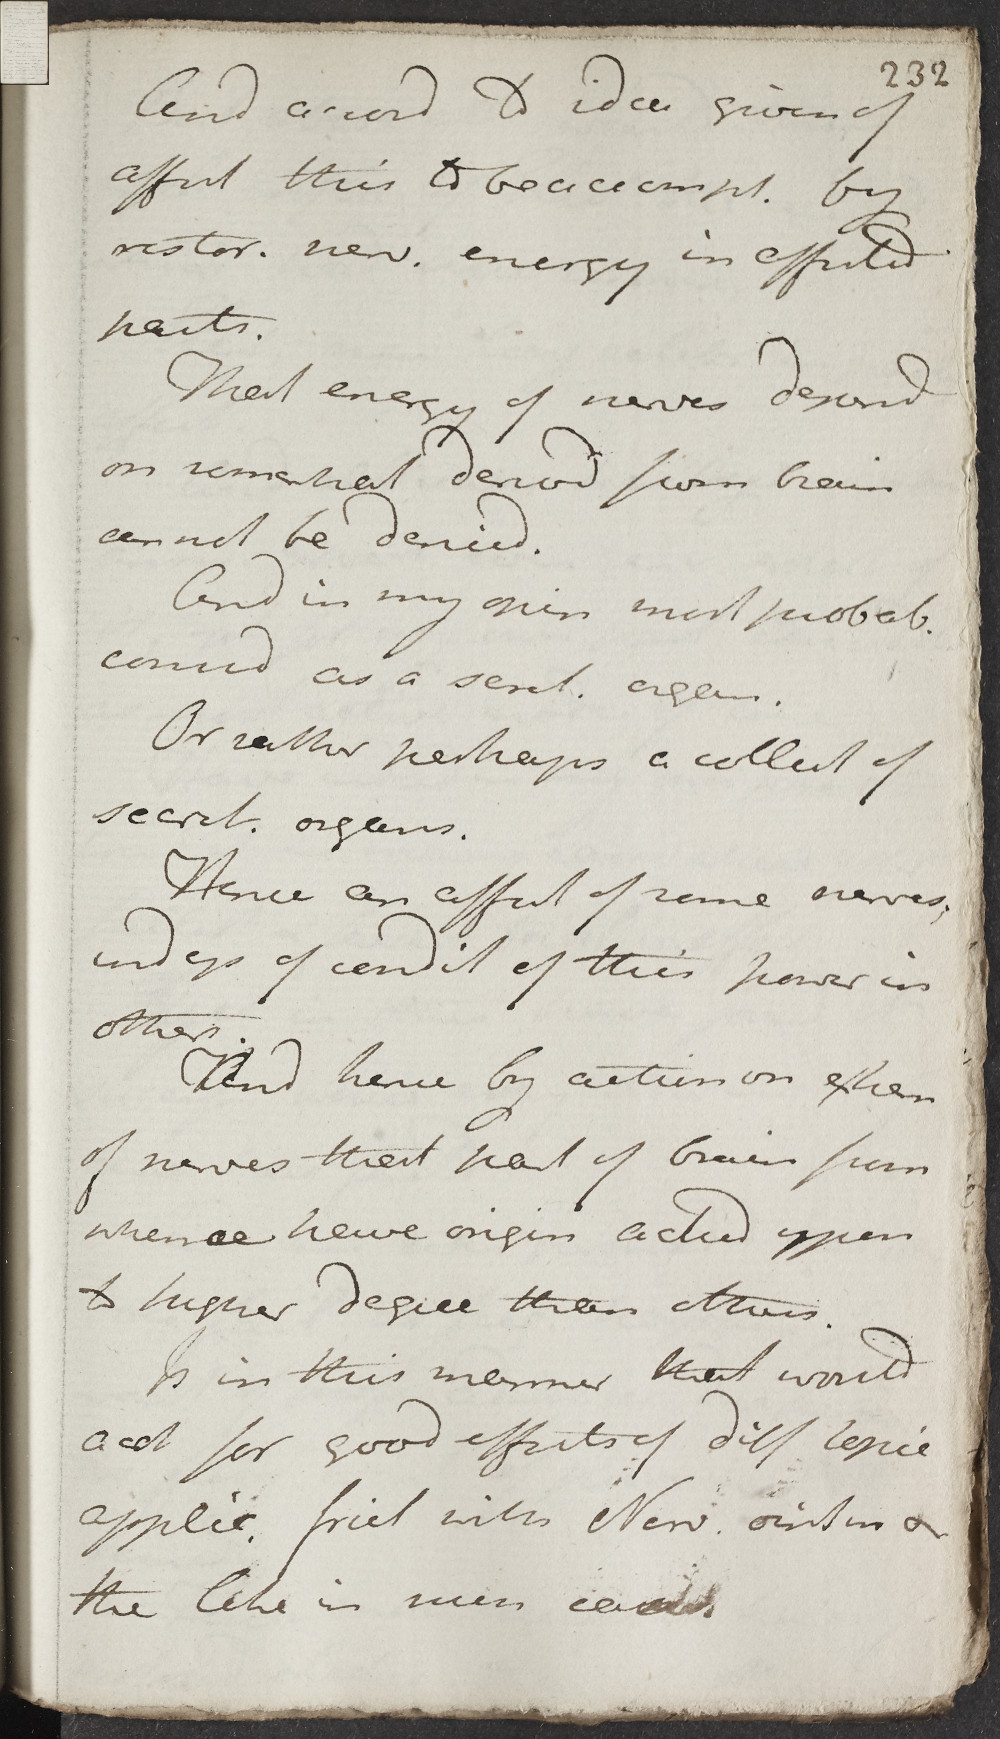 232
And accord to idea given of
affect this to be accompl. by
restor. nerv. energy in affected
parts.
That energy of nerves depend
on somewhat derivd from brain
cannot be denied.
And in my opin most probab.
consid as a secret. organ.
Or rather perhaps a collect of
secret. organs.
Hence an affect of some nerves,
indep of condit of this power in
others.
And hence by action on extrem
of nerves that part of brain from
whence have origin acted upon
to higher degree than others.
Is in this manner that would
acct for good effects of diff topic
applic. frict with Nerv. ointm or
the like in